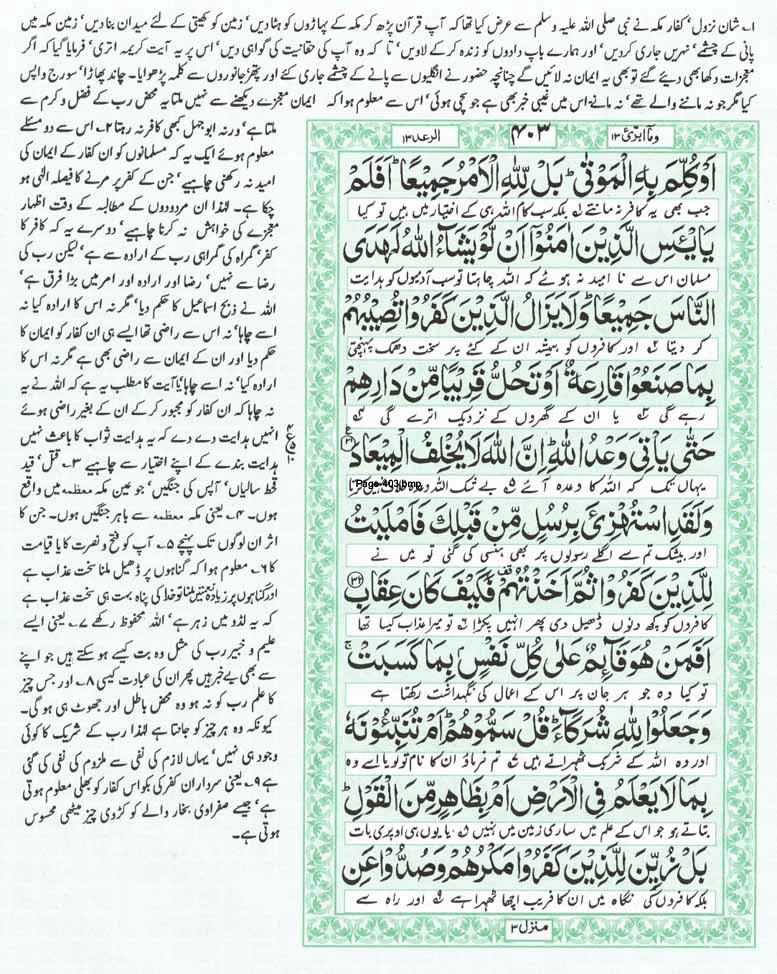 ۱۔ شان نزول‘ کفار مکہ نے نبی صلی اللہ علیہ وسلم سے عرض کیا تھا کہ آپ قرآن پڑھ کر مکہ کے پہاڑوں کو ہٹا دیں‘ زمین کو کھیتی کے لئے میدان بنا دیں‘ زمین مکہ میں
پانی کے چشمے‘ نہریں جاری کر دیں‘ اور ہمارے باپ دادوں کو زندہ کر کے لاویں‘ تا کہ وہ آپ کی حقانیت کی گواہی دیں‘ اس پر یہ آیت کریمہ اتری‘ فرمایا گیا کہ اگر
معجزات دکھا بھی دیئے گئے تو بھی یہ ایمان نہ لائیں گے چنانچہ حضور نے انگلیوں سے پانے کے چشمے جاری کئے اور پتھر‘ جانوروں سے کلمہ پڑھوایا۔ چاند پھاڑا‘ سورج واپس
کیا مگر جو نہ ماننے والے تھے‘ نہ مانے اس میں غیبی خبر بھی ہے جو سچی ہوئی‘ اس سے معلوم ہوا کہ ایمان معجزے دیکھنے سے نہیں ملتا یہ محض رب کے فضل و کرم سے
ملتا ہے‘ ورنہ ابو جہل کبھی کافر نہ رہتا ۲۔ اس سے دو مسئلے
معلوم ہوئے ایک یہ کہ مسلمانوں کو ان کفار کے ایمان کی
امید نہ رکھنی چاہیے‘ جن کے کفر پر مرنے کا فیصلہ الٰہی ہو
چکا ہے۔ لہٰذا ان مردودوں کے مطالبہ کے وقت اظہار
معجزے کی خواہش نہ کرنا چاہیے‘ دوسرے یہ کہ کافر کا
کفر‘ گمراہ کی گمراہی رب کے ارادہ سے ہے‘ لیکن رب کی
رضا سے نہیں‘ رضا اور ارادہ اور امر میں بڑا فرق ہے‘
اللہ نے ذبح اسماعیل کا حکم دیا‘ مگر نہ اس کا ارادہ کیا نہ
اسے چاہا‘ نہ اس سے راضی تھا ایسے ہی ان کفار کو ایمان کا
حکم دیا اور ان کے ایمان سے راضی بھی ہے مگر نہ اس کا
ارادہ کیا‘ نہ اسے چاہا یا آیت کا مطلب یہ ہے کہ اللہ نے یہ
نہ چاہا کہ ان کفار کو مجبور کر کے ان کے بغیر راضی ہوئے
انہیں ہدایت دے دے کہ یہ ہدایت ثواب کا باعث نہیں
ہدایت بندے کے اپنے اختیار سے چاہیے ۳۔ قتل‘ قید
قحط سالیاں‘ آپس کی جنگیں‘ جو عین مکہ معظمہ میں واقع
ہوں۔ ۴۔ یعنی مکہ معظمہ سے باہر جنگیں ہوں۔ جن کا
اثر ان لوگوں تک پہنچے ۵۔ آپ کو فتح و نصرت کا یا قیامت
کا ۶۔ معلوم ہوا کہ گناہوں پر ڈھیل ملنا سخت عذاب ہے
اور گناہوں پر زیادہ نعمتیں ملنا تو خدا کی پناہ بہت ہی سخت عذاب ہے
کہ یہ لڈو میں زہر ہے‘ اللہ محفوظ رکھے ۷۔ یعنی ایسے
علیم و خبیر رب کی مثل وہ بت کیسے ہو سکتے ہیں جو اپنے
سے بھی بے خبر ہیں پھر ان کی عبادت کیسی ۸۔ اور جس چیز
کا علم رب کو نہ ہو وہ محض باطل اور جھوٹ ہی ہو گی۔
کیونکہ وہ ہر چیز کو جانتا ہے لہٰذا رب کے شریک کا کوئی
وجود ہی نہیں‘ یہاں لازم کی نفی سے ملزوم کی نفی کی گئی
ہے ۹۔ یعنی سرداران کفر کی بکواس کفار کو بھلی معلوم ہوتی
ہے‘ جیسے صفراوی بخار والے کو کڑوی چیز میٹھی محسوس
ہوتی ہے۔
وما ابرئ ۱۳
۴۰۳
الرعد ۱۳
اَوْ كُلِّمَ بِهِ الْمَوْتٰى ؕ بَلْ لِّلّٰهِ الْاَمْرُ جَمِيْعًا ؕ اَفَلَمْ
جب بھی یہ کافر نہ مانتے ۱ بلکہ سب کام اللہ ہی کے اختیار میں ہیں تو کیا
يَايْـَٔسِ الَّذِيْنَ اٰمَنُوْۤا اَنْ لَّوْ يَشَآءُ اللّٰهُ لَهَدَى
مسلمان اس سے نا امید نہ ہوئے کہ اللہ چاہتا تو سب آدمیوں کو ہدایت
النَّاسَ جَمِيْعًا ؕ وَلَا يَزَالُ الَّذِيْنَ كَفَرُوْا تُصِيْبُهُمْ
کر دیتا ۲ اور کافروں کو ہمیشہ ان کے کئے پر سخت دھمک پہنچتی
بِمَا صَنَعُوْا قَارِعَةٌ اَوْ تَحُلُّ قَرِيْبًا مِّنْ دَارِهِمْ
رہے گی ۳ یا ان کے گھروں کے نزدیک اترے گی ۴
حَتّٰى يَاْتِيَ وَعْدُ اللّٰهِ ؕ اِنَّ اللّٰهَ لَا يُخْلِفُ الْمِيْعَادَ ﴿۳۱﴾
یہاں تک کہ اللہ کا وعدہ آئے ۵ بے شک اللہ
Page-403.bmp
وَلَقَدِ اسْتُهْزِئَ بِرُسُلٍ مِّنْ قَبْلِكَ فَاَمْلَيْتُ
اور بیشک تم سے اگلے رسولوں پر بھی ہنسی کی گئی تو میں نے
لِلَّذِيْنَ كَفَرُوْا ثُمَّ اَخَذْتُهُمْ ۫ فَكَيْفَ كَانَ عِقَابِ ﴿۳۲﴾
کافروں کو کچھ دنوں ڈھیل دی پھر انہیں پکڑا ۶ تو میرا عذاب کیسا تھا
اَفَمَنْ هُوَ قَآئِمٌ عَلٰى كُلِّ نَفْسٍۭ بِمَا كَسَبَتْ ۚ
تو کیا وہ جو ہر جان پر اس کے اعمال کی نگہداشت رکھتا ہے
وَجَعَلُوْا لِلّٰهِ شُرَكَآءَ ؕ قُلْ سَمُّوْهُمْ ؕ اَمْ تُنَبِّـُٔوْنَهٗ
اور وہ اللہ کے شریک ٹھہراتے ہیں ۷ تم فرماؤ ان کا نام تو لو یا اسے وہ
بِمَا لَا يَعْلَمُ فِى الْاَرْضِ اَمْ بِظَاهِرٍ مِّنَ الْقَوْلِ ؕ
بتاتے ہو جو اس کے علم میں ساری زمین میں نہیں ۸ یا یوں ہی اوپری بات
بَلْ زُيِّنَ لِلَّذِيْنَ كَفَرُوْا مَكْرُهُمْ وَصُدُّوْا عَنِ
بلکہ کافروں کی نگاہ میں ان کا فریب اچھا ٹھہرا ہے ۹ اور راہ سے
منزل ۳